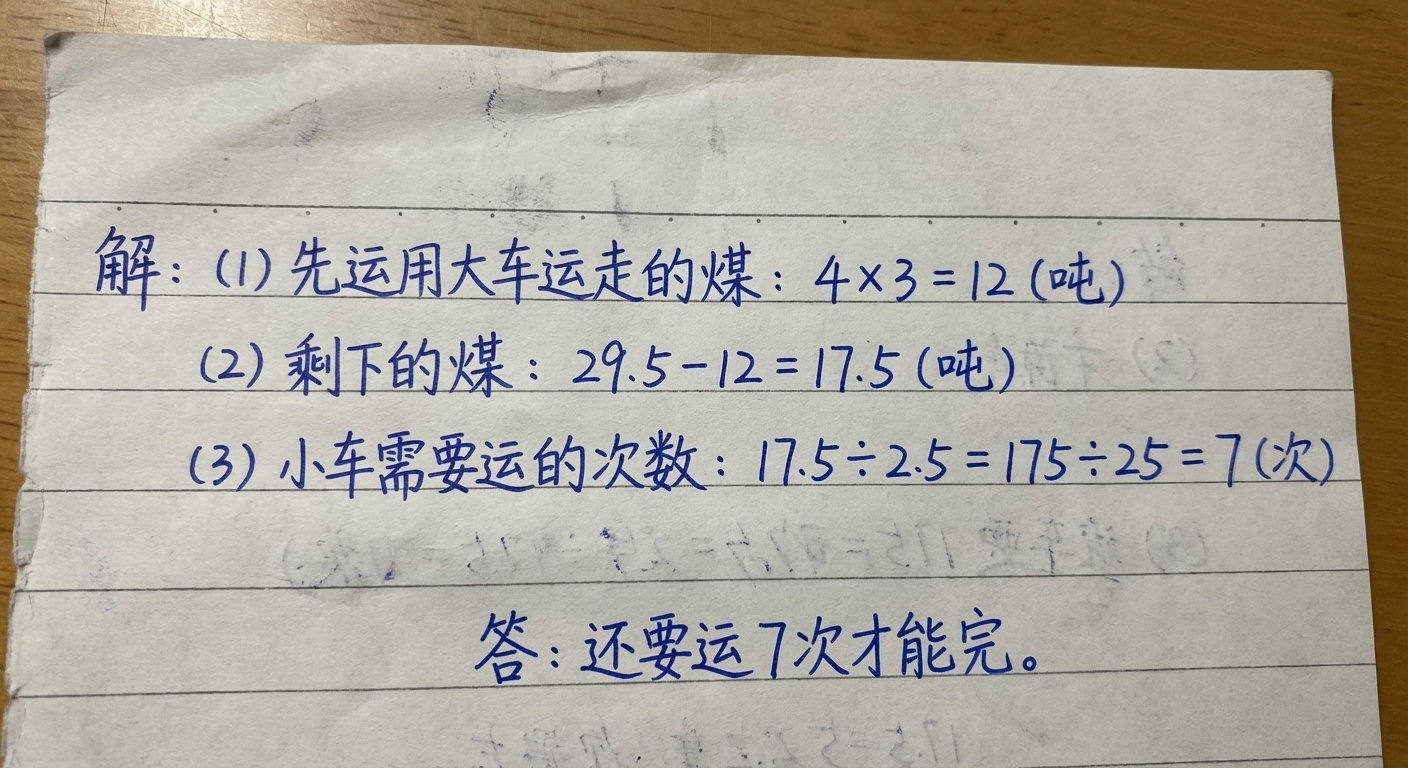 解：(1) 先运用大车运走的煤：4×3=12 (吨)
(2) 剩下的煤：29.5-12=17.5 (吨)
(3) 小车需要运的次数：17.5÷2.5=175÷25=7(次)
答：还要运7次才能完。